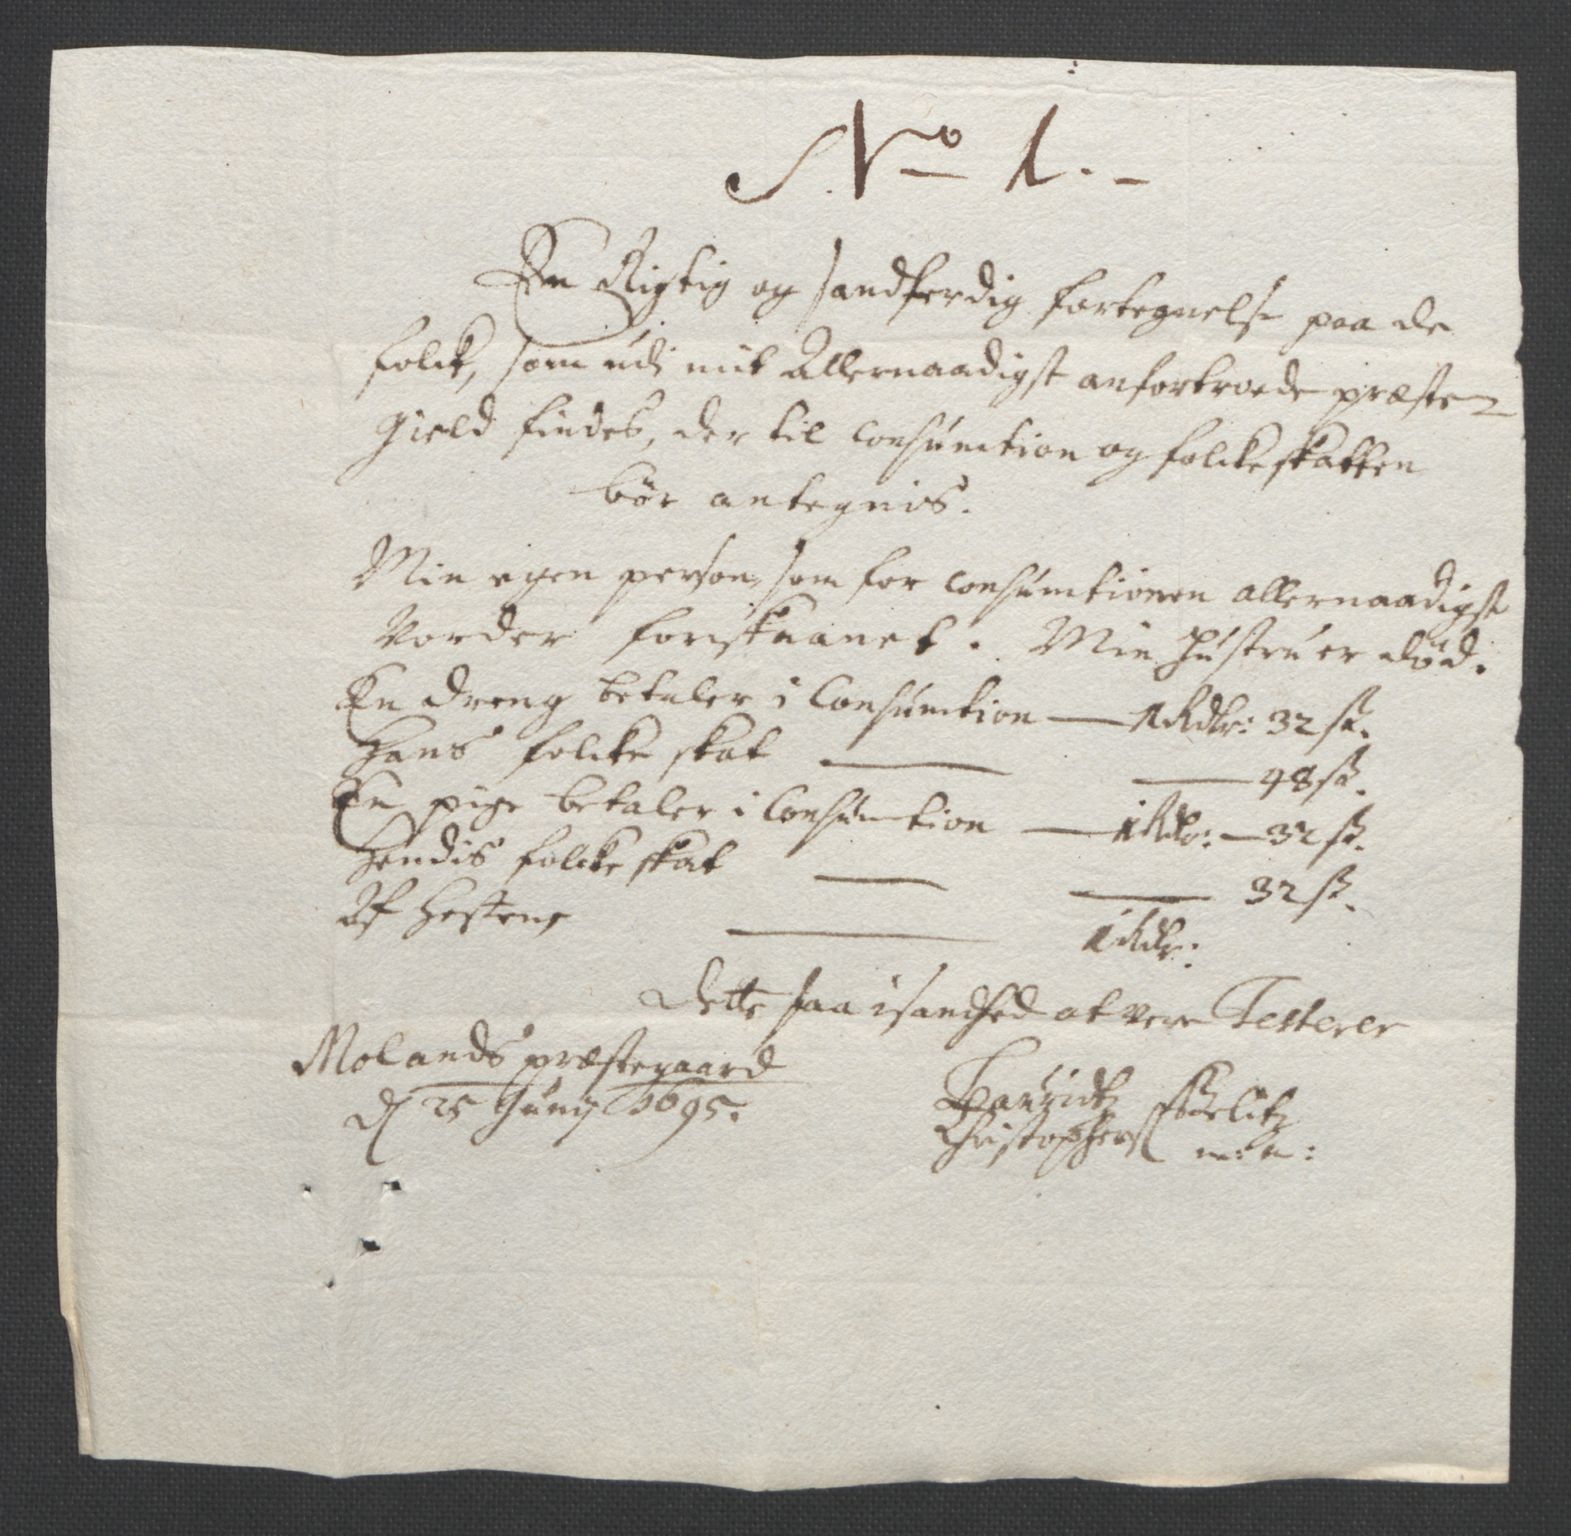 No 1.
En Rigtig og sandferdig fortegnelse paa de
folck, som udi mit Allernaadigst anfortroede præste
gield findes, der til Consumtion og folckeskatten
bør antegnis.
Min egen person, som for Consumtionen allernaadigst
vorder forskaanet. Min Hustru er død.
En dreng betaler i Consumtion — 1 Rdlr: 32 sk.
Hans folcke skat — — 48 sk.
En pige betaler i Consumtion — 1 Rdlr: — 32 sk.
Hendis folcke skat — — 32 sk.
Af Hesten — 1 Rdlr:
Dette saa i sandhed at vere Testerer
Molands præstegaard
d 25 Junij 1695.
Christophers
m: m: